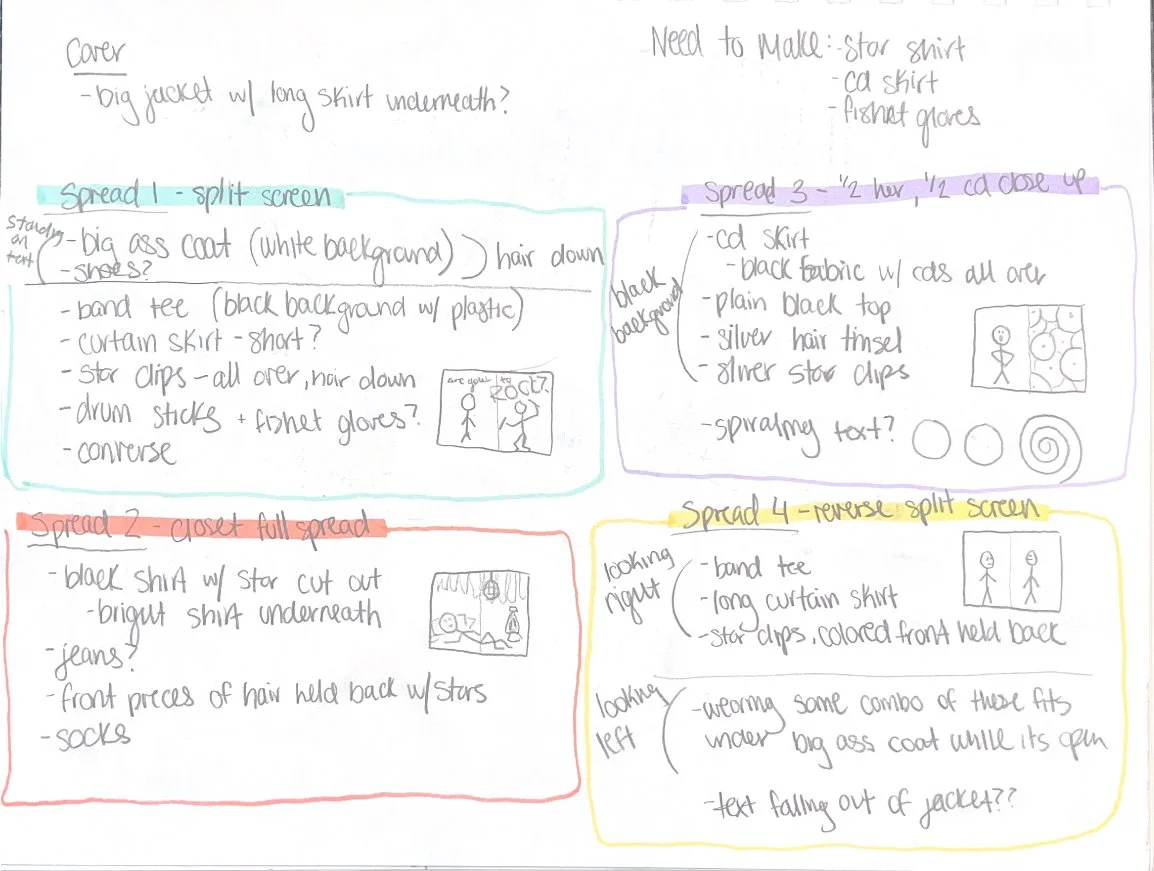 Cover
- big jacket w/ long skirt underneath?
Need to Make: - Star shirt
- cd skirt
- fishnet gloves
Spread 1 - split screen
standing on text
- big ass coat (white background)
- shoes?
hair down
- band tee (black background w/ plastic)
- curtain skirt - short?
- star clips - all over, hair down
- drum sticks + fishnet gloves?
- converse
are you to
ROCK?
Spread 2 - closet full spread
- black shirt w/ star cut out
- bright shirt underneath
- jeans?
- front pieces of hair held back w/ stars
- socks
Spread 3 - 1/2 her, 1/2 cd close up
black background
- cd skirt
- black fabric w/ cds all over
- plain black top
- silver hair tinsel
- silver star clips
- spiraling text?
Spread 4 - reverse split screen
looking right
- band tee
- long curtain shirt
- star clips, colored front held back
looking left
- wearing some combo of these fits
under big ass coat while its open
- text falling out of jacket??